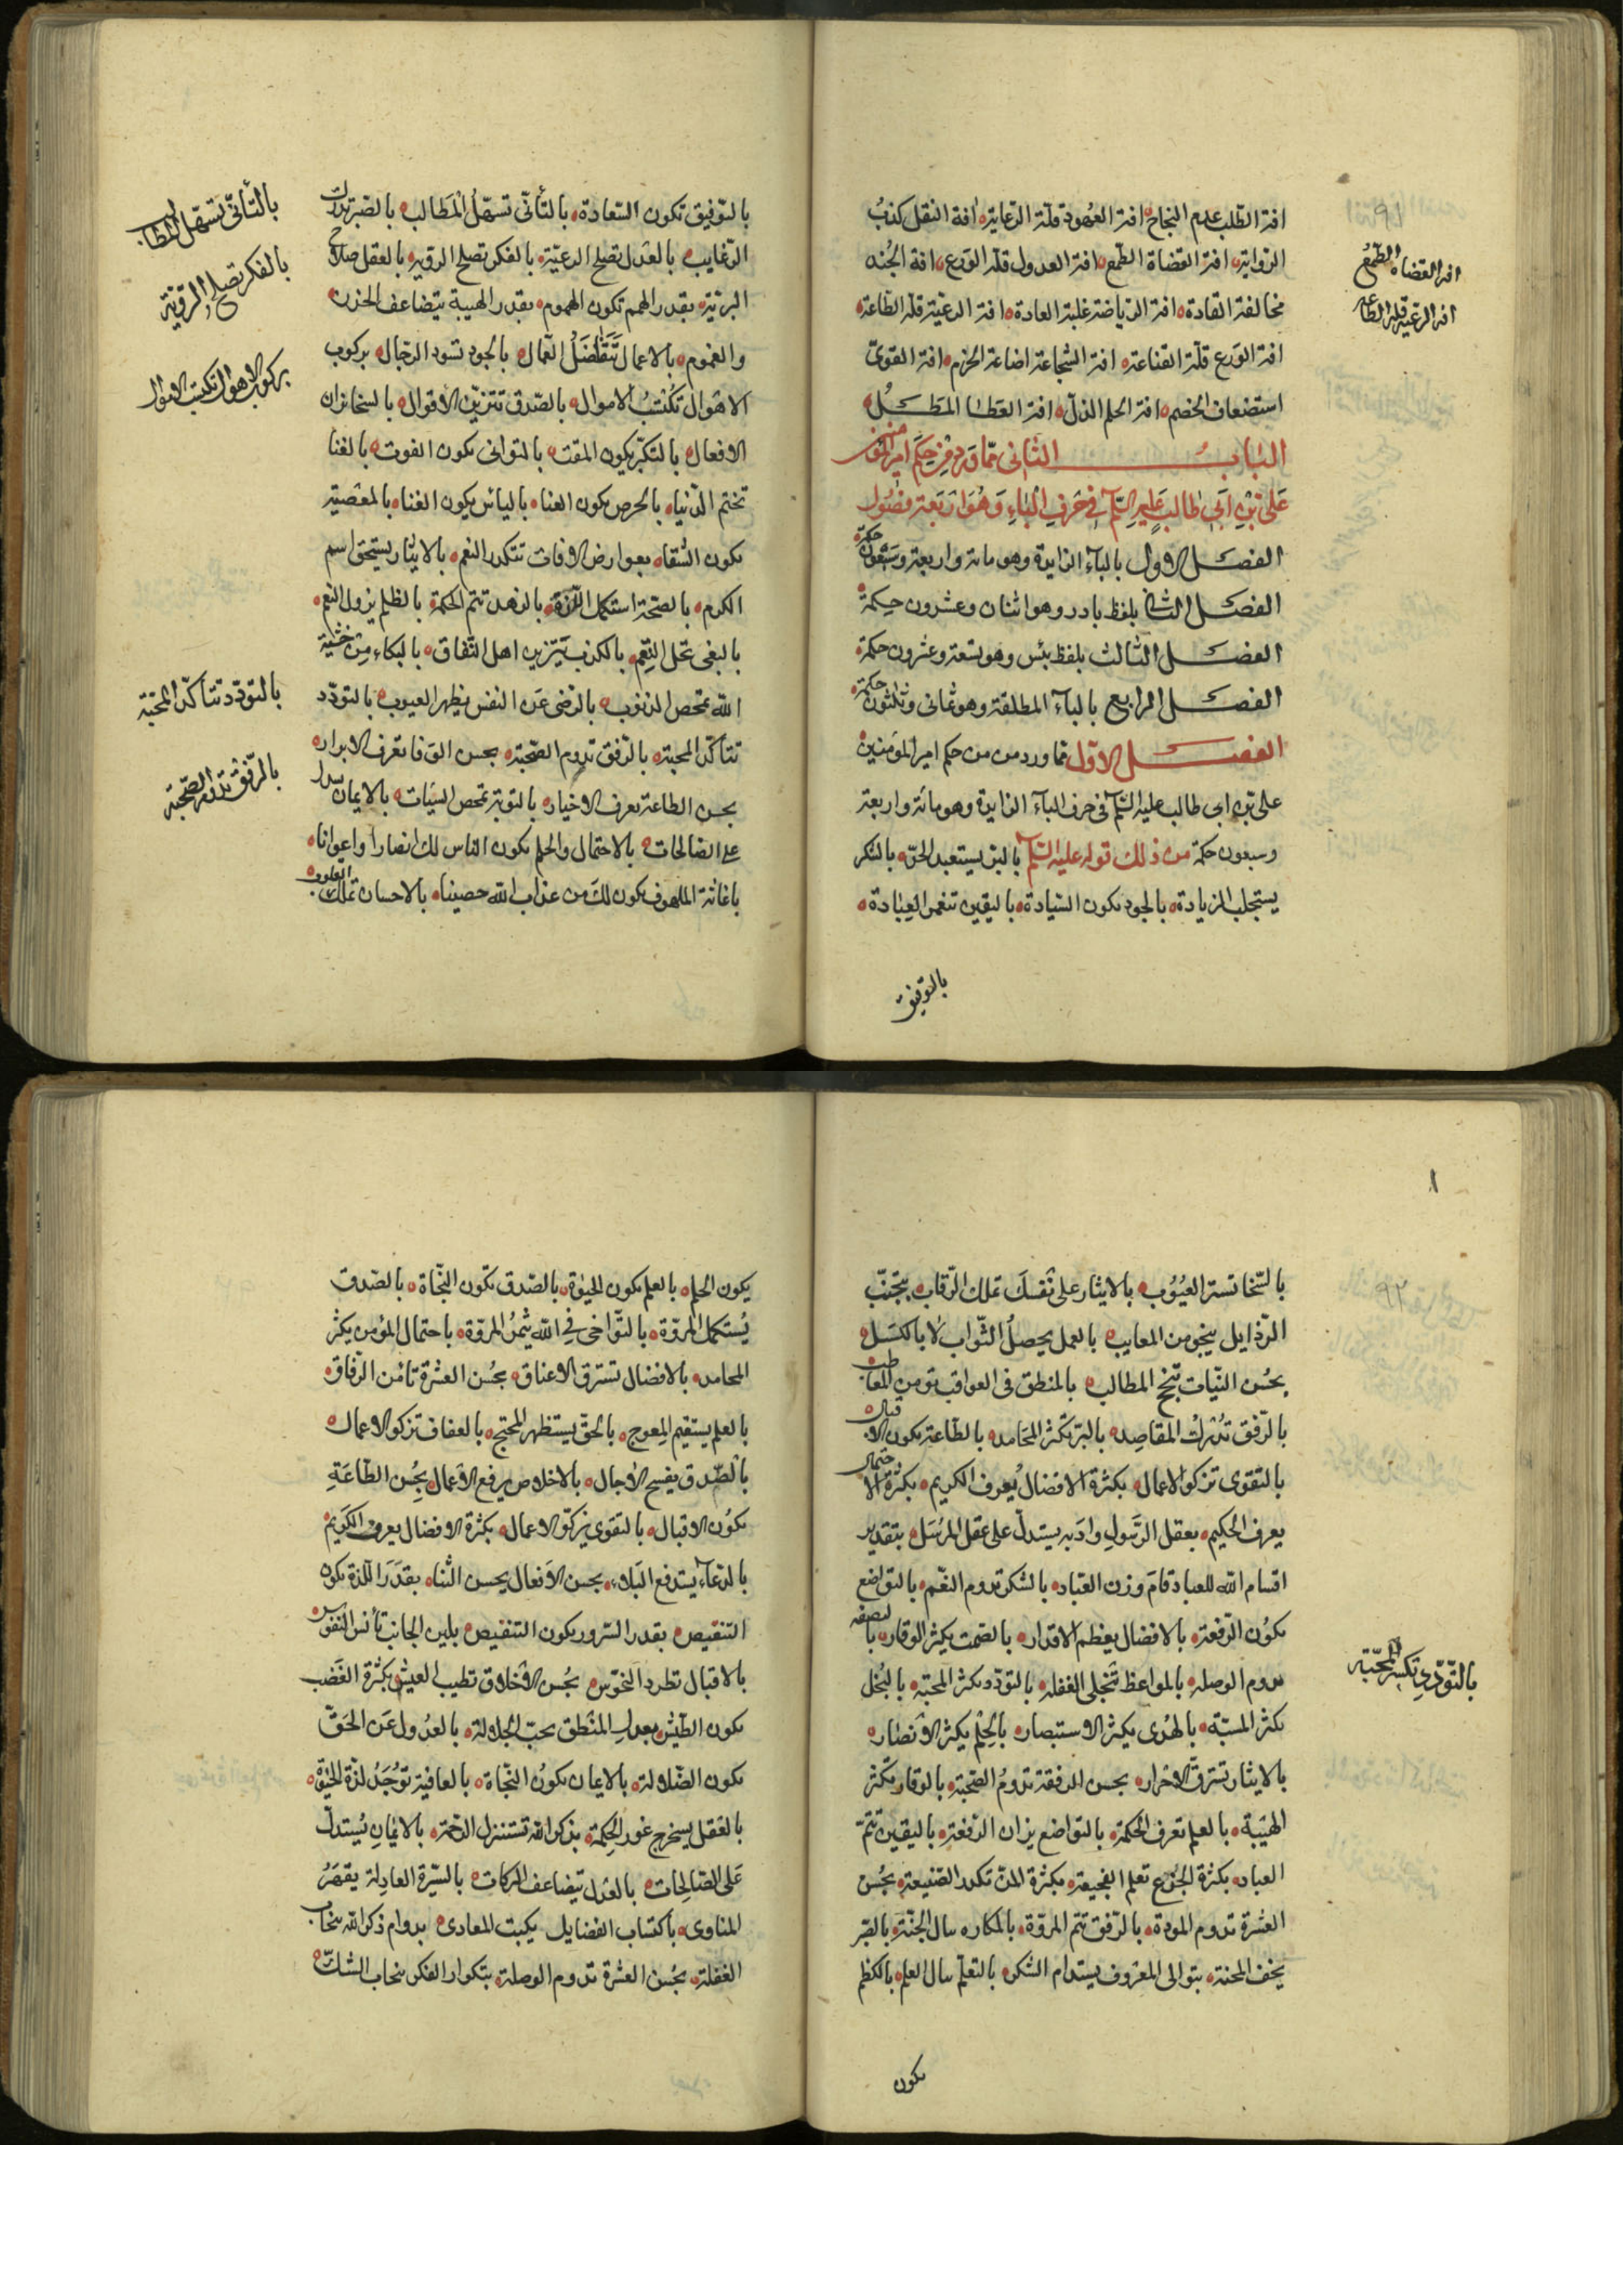 افة الطلب عدم النجاح افة العهود قلة الرعاية افة النقل كذب
الرواية افة القضاة الطمع افة العدول قلة الورع افة الجند
مخالفة القادة افة الرياضة غلبة العادة افة الرعية قلة الطاعة
افة الورع قلة القناعة افة الشجاعة اضاعة الحزم افة القوى
استضعاف الخصم افة الحلم الذل افة العطا المطل
الباب الثانى مما ورد من حكم امير المؤمنين
على بن ابى طالب عليه السلم فى حرف الباء وهو اربعة فصول
الفصل الاول بالباء الزايدة وهو مائة واربعة وسبعون حكمة
الفصل الثانى بلفظ بادر وهو اثنان وعشرون حكمة
الفصل الثالث بلفظ بئس وهو تسعة وعشرون حكمة
الفصل الرابع بالباء المطلقة وهو ثمانى وثلثون حكمة
الفصل الاول مما ورد من حكم امير المؤمنين
على بن ابى طالب عليه السلم فى حرف الباء الزايدة وهو مائة واربعة
وسبعون حكمة من ذلك قوله عليه السلم بالبر يستعبد الحر بالشكر
يستجلب الزيادة بالجود تكون السيادة باليقين تتم العبادة
بالتوفيق
٩١
افة القضاة الطمع
افة الرعية قلة الطاعة
بالتوفيق تكون السعادة بالتأنى تسهل المطالب بالصبر تدرك
الرغايب بالعدل تصلح الرعية بالفكر تصلح الروية بالعقل صلاح
البرية بقدر الهمم تكون الهموم بقدر الهيبة يتضاعف الحزن
والغموم بالاعمال تتفاضل العمال بالجود تسود الرجال بركوب
الاهوال تكتسب الاموال بالصدق تتزين الاقوال بالسخا تزان
الافعال بالتكبر يكون المقت بالتوانى يكون الفوت بالفنا
تختم الدنيا بالحرص يكون العنا بالياس يكون الغنا بالمعصية
تكون الشقا بعوارض الافات تتكدر النعم بالايثار يستحق اسم
الكرم بالصحة استكمل اللذة بالزهد تتم الحكمة بالظلم يزول النعم
بالبغى تحل النقم بالكذب يتزين اهل النفاق بالبكاء من خشية
الله تمحص الذنوب بالرضى عن النفس يظهر العيوب بالتودد
تتأكد المحبة بالرفق تدوم الصحبة بحسن الوفا تعرف الابرار
بحسن الطاعة يعرف الاخيار بالتوبة تمحص السيئات بالايمان يستدل
على الصالحات بالاحتمال والحلم يكون الناس لك انصارا واعوانا
باغاثة الملهوف يكون لك من عذاب الله حصينا بالاحسان تملك القلوب
بالتأنى تسهل المطالب
بالفكر تصلح الروية
بركوب الاهوال تكتسب الاموال
بالتودد تتأكد المحبة
بالرفق تدوم الصحبة
بالسخا تستر العيوب بالايثار على نفسك تملك الرقاب بتجنب
الرذايل ينجو من المعايب بالعمل يحصل الثواب لا بالكسل
بحسن النيات تنجح المطالب بالمنطق فى العواقب تومن المعاطب
بالرفق تدرك المقاصد بالبر تكثر المحامد بالطاعة يكون الاقبال
بالتقوى تزكو الاعمال بكثرة الافضال يعرف الكريم بكثرة الاحتمال
يعرف الحكيم بعقل الرسول وادبه يستدل على عقل المرسل بتقدير
اقسام الله للعباد قام وزن العباد بالشكر تدوم النعم بالتواضع
تكون الرفعة بالافضال يعظم الاقدار بالصمت يكثر الوقار بالنصفة
تدوم الوصلة بالمواعظ تنجلى الغفلة بالتودد تكثر المحبة بالبخل
تكثر المسبة بالهدى يكثر الاستبصار بالحلم يكثر الانصار
بالايثار تسترق الاحرار بحسن الرفقة تدوم الصحبة بالوقار تكثر
الهيبة بالعلم تعرف الحكمة بالتواضع يزان الرفعة باليقين تتم
العباد بكثرة الجزع تعلم الفجيعة بكثرة المن تكدر الصنيعة بحسن
العشرة تدوم المودة بالرفق تتم المروة بالمكاره تنال الجنة بالصبر
يخف المحنة بتوالى المعروف يستدام الشكر بالتعلم ينال العلم بالكظم
يكون
٩٢
١
بالتودد تكثر المحبة
يكون الحلم بالعلم يكون الحيوة بالصدق تكون النجاة بالصدق
يستكمل المروة بالتواخى فى الله يثمر المروة باحتمال المؤمن يكثر
المحامد بالافضال تسترق الاعناق بحسن العشرة تأنس الرفاق
بالعلم يستقيم المعوج بالحق يستظهر المحتج بالعفاف تزكو الاعمال
بالصدق يفسح الاجال بالاخلاص يرفع الاعمال بحسن الطاعة
يكون الاقبال بالتقوى يزكو الاعمال بكثرة الافضال يعرف الكريم
بالدعاء يستدفع البلاء بحسن الافعال يحسن الثناء بقدر اللذة يكون
التنغيص بقدر السرور يكون التنغيص بلين الجانب تأنس النفوس
بالاقبال تطرد النحوس بحسن الاخلاق تطيب العيش بكثرة الغضب
يكون الطيش بعدل المنطق يجب الجلالة بالعدول عن الحق
تكون الضلالة بالايمان تكون النجاة بالعافية توجد لذة الحيوة
بالعقل يستخرج غور الحكمة بذكر الله تستنزل الرحمة بالايمان يستدل
على الصالحات بالعدل يتضاعف البركات بالسيرة العادلة يقهر
المناوى باكتساب الفضايل يكبت المعادى بدوام ذكر الله ينجاب
الغفلة بحسن العشرة تدوم الوصلة بتكرار الفكر ينجاب الشك